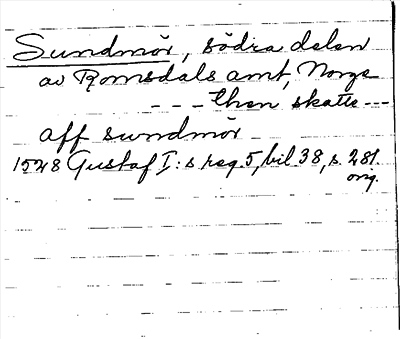 Sundmör, södra delen
av Romsdals amt, Norge
- - - then skatte - - -
aff sundmör
1528 Gustaf I:s reg. 5, bil 38, s. 281.
orig.